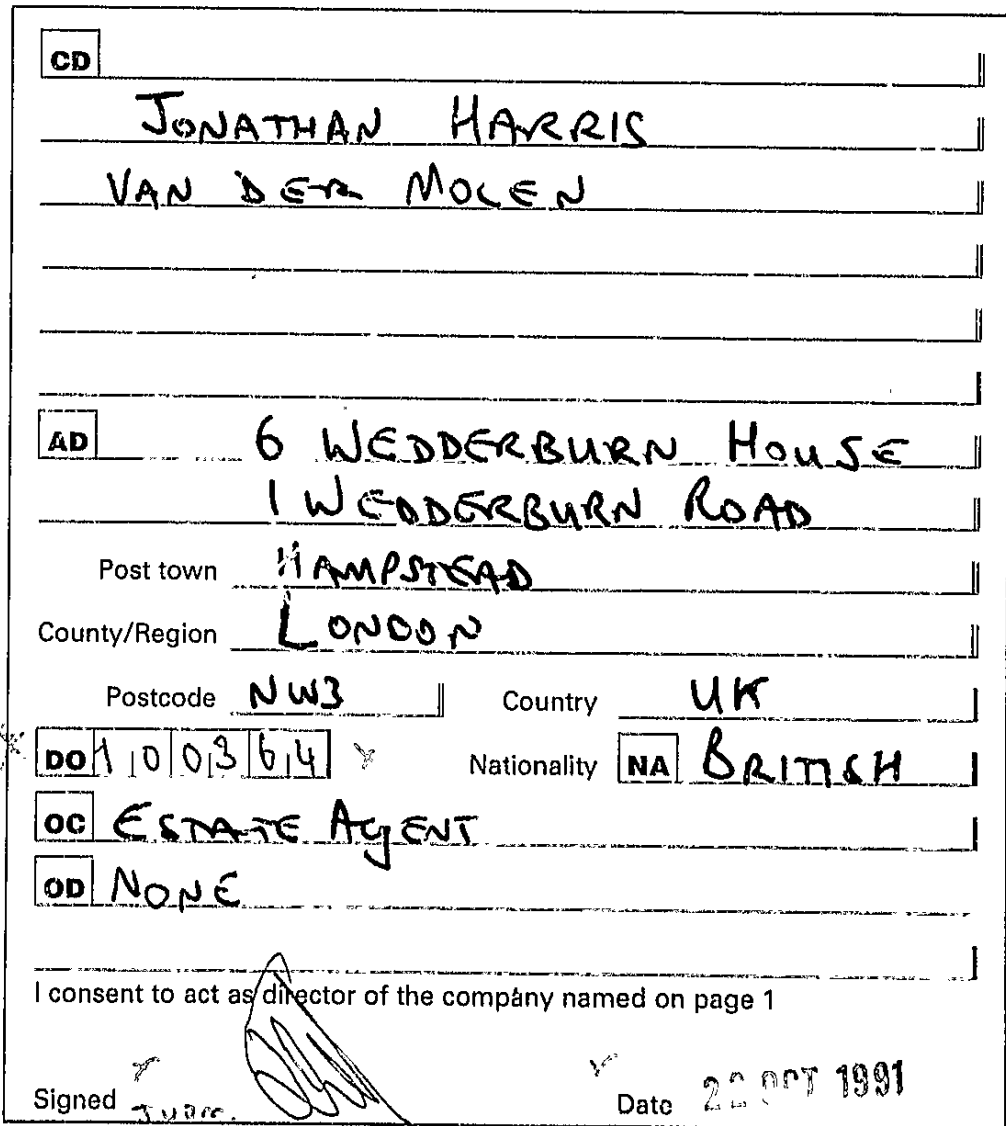 CD
JONATHAN HARRIS
VAN DER MOLEN
AD 6 WEDDERBURN HOUSE
1 WEDDERBURN ROAD
Post town HAMPSTEAD
County/Region LONDON
Postcode NW3 Country UK
DO 100364 Nationality NA BRITISH
OC ESTATE AGENT
OD NONE
I consent to act as director of the company named on page 1
Signed Date OCT 1991